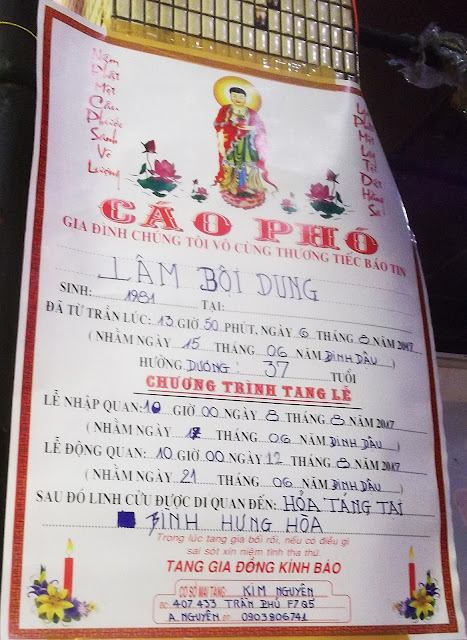 Niệm Phật Một Câu Phước Sanh Vô Lượng
Lạy Phật Một Lạy Tội Diệt Hằng Sa
CÁO PHÓ
GIA ĐÌNH CHÚNG TÔI VÔ CÙNG THƯƠNG TIẾC BÁO TIN
LÂM BỘI DUNG
SINH: 1981 TẠI:
ĐÃ TỪ TRẦN LÚC: 13 GIỜ 50 PHÚT, NGÀY 6 THÁNG 8 NĂM 2017
( NHẰM NGÀY 15 THÁNG 06 NĂM ĐINH DẬU )
HƯỞNG DƯƠNG : 37 TUỔI
CHƯƠNG TRÌNH TANG LỄ
LỄ NHẬP QUAN: 10 GIỜ 00 NGÀY 8 THÁNG 8 NĂM 2017
( NHẰM NGÀY 17 THÁNG 06 NĂM ĐINH DẬU )
LỄ ĐỘNG QUAN: 10 GIỜ 00 NGÀY 12 THÁNG 8 NĂM 2017
( NHẰM NGÀY 21 THÁNG 06 NĂM ĐINH DẬU )
SAU ĐÓ LINH CỬU ĐƯỢC DI QUAN ĐẾN: HỎA TÁNG TẠI
BÌNH HƯNG HÒA
Trong lúc tang gia bối rối, nếu có điều gì
sai sót xin niệm tình tha thứ.
TANG GIA ĐỒNG KÍNH BÁO
CƠ SỞ MAI TÁNG: KIM NGUYÊN
ĐC: 407.433 TRẦN PHÚ F7Q5
A. NGUYÊN ĐT: 0903906741